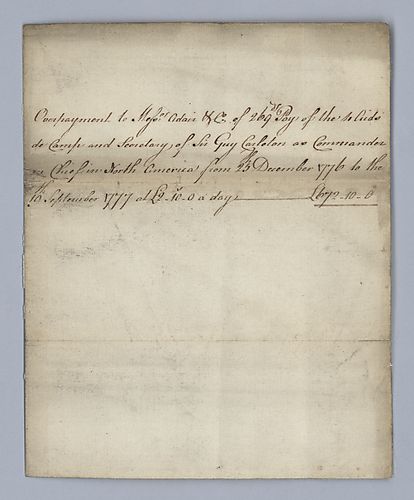 Overpayment to Mess.rs Adair & Co. of 269 d.s Pay of the 4 Aids
de Camp and Secretary of Sir Guy Carleton as Commander
Chief in North America from 25th December 1776 to the
19th September 1777 at £2-10-0 a day £672-10-0